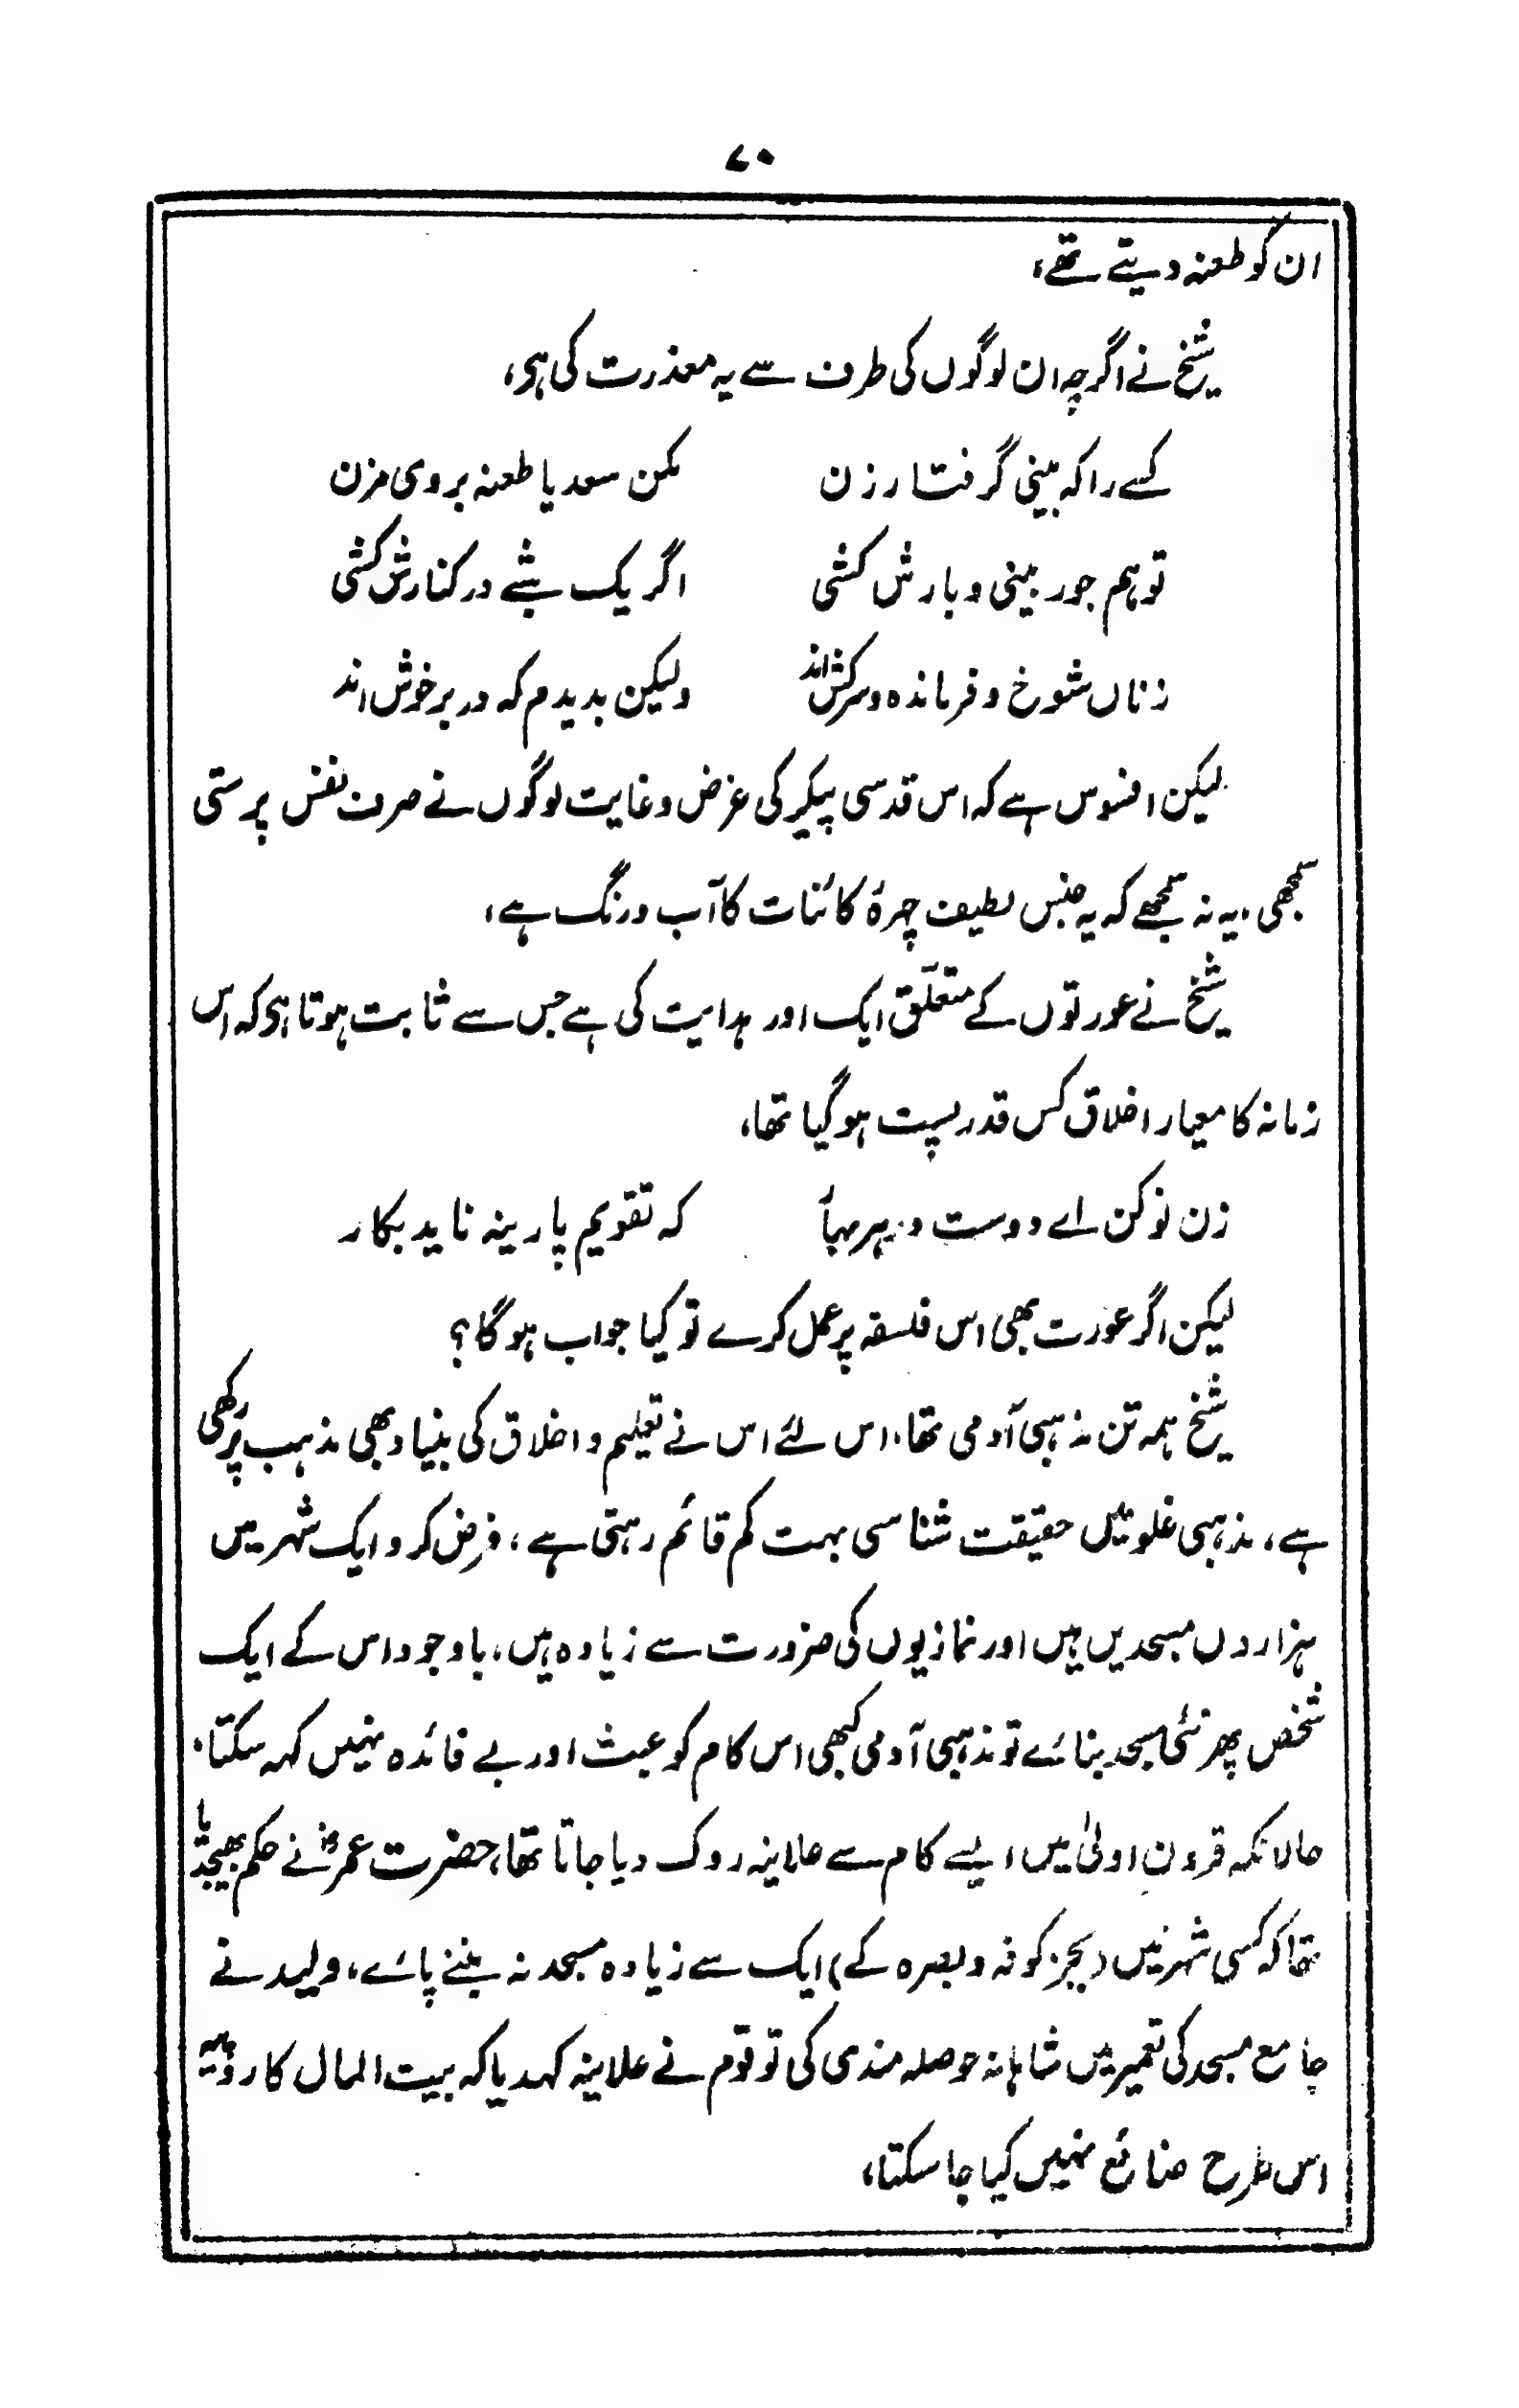 ۷۰
ان کو طعنہ دیتے تھے،
شیخ نے اگرچہ ان لوگوں کی طرف سے یہ معذرت کی ہی،
کسے را کہ بینی گرفتار زن مکن سعدیا طعنہ بروی مزن
تو ہم جور بینی و بارش کشی اگر یک شبے در کنارش کشی
زناں شوخ و فرماندہ و سرکش اند ولیکن بدیدم کہ در برخوش اند
لیکن افسوس ہے کہ اس قدسی پیکر کی غرض و غایت لوگوں نے صرف نفس پرستی
سمجھی، یہ نہ سمجھے کہ یہ جنس لطیف چہرۂ کائنات کا آب و رنگ ہے،
شیخ نے عورتوں کے متعلّق ایک اور ہدایت کی ہے جس سے ثابت ہوتا ہی کہ اس
زمانہ کا معیار اخلاق کس قدر پست ہو گیا تھا،
زن نو کن اے دوست در ہر بہار کہ تقویم پارینہ ناید بکار
لیکن اگر عورت بھی اس فلسفہ پر عمل کرے تو کیا جواب ہوگا؟
شیخ ہمہ تن مذہبی آدمی تھا، اس لئے اس نے تعلیم و اخلاق کی بنیاد بھی مذہب پر رکھی
ہے، مذہبی غلو میں حقیقت شناسی بہت کم قائم رہتی ہے، فرض کرو ایک شہر میں
ہزاروں مسجدیں ہیں اور نمازیوں کی ضرورت سے زیادہ ہیں، باوجود اس کے ایک
شخص پھر نئی مسجد بنائے تو مذہبی آدمی کبھی اس کام کو عبث اور بے فائدہ نہیں کہہ سکتا،
حالانکہ قرون اولیٰ میں ایسے کام سے علانیہ روک دیا جاتا تھا، حضرت عمرؓ نے حکم بھیجدیا
تھا کہ کسی شہر میں (بجز کوفہ و بصرہ کے) ایک سے زیادہ مسجد نہ بننے پائے، ولید نے
جامع مسجد کی تعمیر میں شاہانہ حوصلہ مندی کی تو قوم نے علانیہ کہدیا کہ بیت المال کا روپیہ
اس طرح ضائع نہیں کیا جا سکتا،